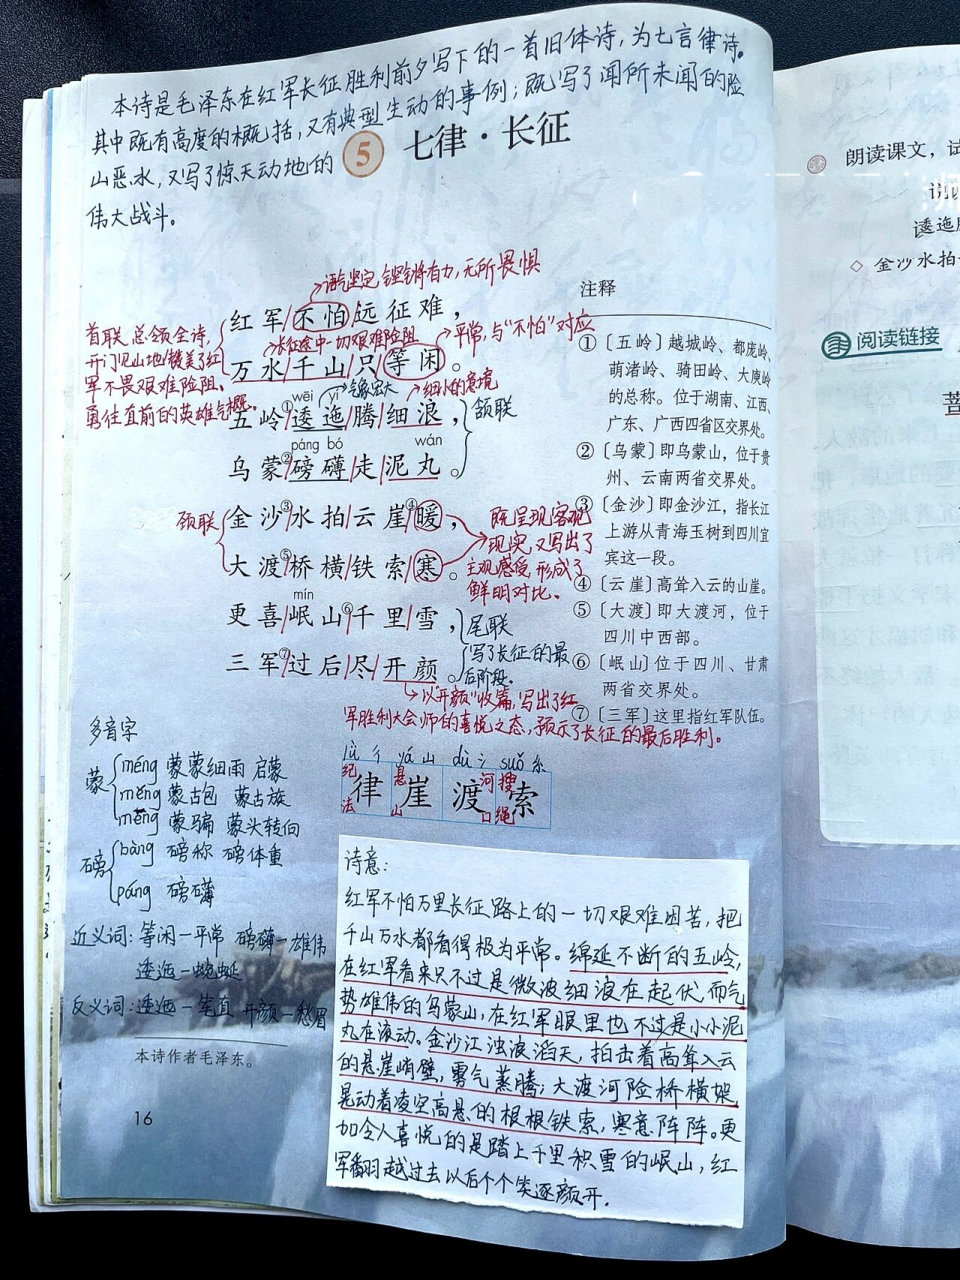 本诗是毛泽东在红军长征胜利前夕写下的一首旧体诗,为七言律诗。
其中既有高度的概括,又有典型生动的事例;既写了闻所未闻的险
山恶水,又写了惊天动地的
伟大战斗。
5 七律·长征
语气坚定,铿锵有力,无所畏惧
红军/不怕/远征难,
长征途中一切艰难险阻
平常,与“不怕”对应
万水/千山/只/等闲。
首联总领全诗,
开门见山地赞美了红
军不畏艰难险阻,
勇往直前的英雄气概。
气象宏大
细小的意境
wēi yí
五岭①/逶迤/腾/细浪,
páng bó wán
乌蒙②/磅礴/走/泥丸。
颔联
颈联
金沙③/水拍/云崖④/暖,
大渡⑤/桥横/铁索/寒。
既呈现客观
现实,又写出了
主观感受,形成了
鲜明对比。
mín
更喜/岷山⑥/千里/雪,
三军⑦/过后/尽/开颜。
尾联
写了长征的最
后阶段。
以“开颜”收篇,写出了红
军胜利大会师的喜悦之态,预示了长征的最后胜利。
注释
①〔五岭〕越城岭、都庞岭、
萌渚岭、骑田岭、大庾岭
的总称。位于湖南、江西、
广东、广西四省区交界处。
②〔乌蒙〕即乌蒙山,位于贵
州、云南两省交界处。
③〔金沙〕即金沙江,指长江
上游从青海玉树到四川宜
宾这一段。
④〔云崖〕高耸入云的山崖。
⑤〔大渡〕即大渡河,位于
四川中西部。
⑥〔岷山〕位于四川、甘肃
两省交界处。
⑦〔三军〕这里指红军队伍。
lǜ 彳 yá 山 dù 氵 suǒ 糸
纪 法 律 悬 山 崖 渡 河 口 搜 绳 索
多音字
蒙 méng 蒙蒙细雨 启蒙
měng 蒙古包 蒙古族
mēng 蒙骗 蒙头转向
磅 bàng 磅称 磅体重
páng 磅礴
近义词:等闲—平常 磅礴—雄伟
逶迤—蜿蜒
反义词:逶迤—笔直 开颜—愁眉
本诗作者毛泽东。
16
诗意:
红军不怕万里长征路上的一切艰难困苦,把
千山万水都看得极为平常。绵延不断的五岭,
在红军看来只不过是微波细浪在起伏,而气
势雄伟的乌蒙山,在红军眼里也不过是小小泥
丸在滚动。金沙江浊浪滔天,拍击着高耸入云
的悬崖峭壁,雾气蒸腾;大渡河险桥横架,
晃动着凌空高悬的根根铁索,寒意阵阵。更
加令人喜悦的是踏上千里积雪的岷山,红
军翻越过去以后个个笑逐颜开.
朗读课文,试
逶迤
◇ 金沙水拍
阅读链接
菩